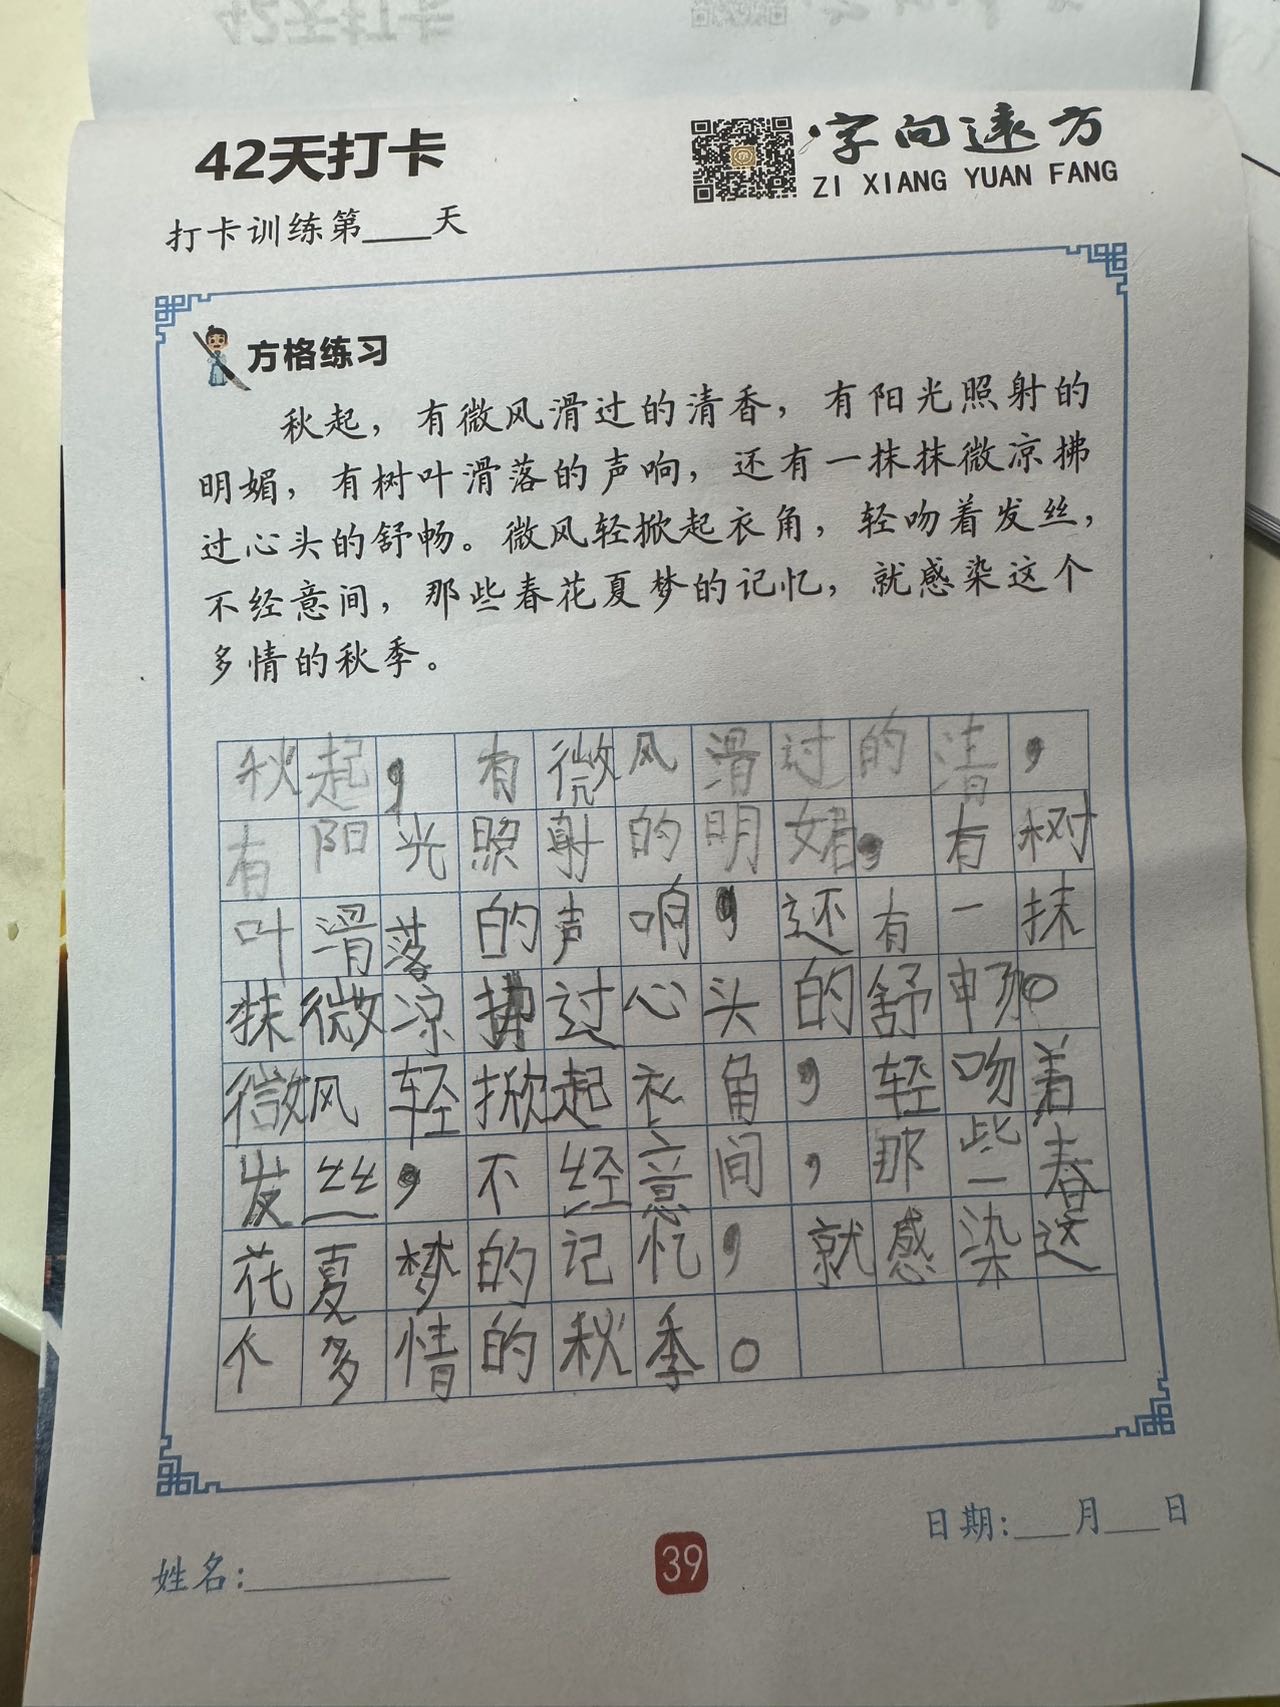 42天打卡
字向远方
ZI XIANG YUAN FANG
打卡训练第____天
方格练习
秋起，有微风滑过的清香，有阳光照射的
明媚，有树叶滑落的声响，还有一抹抹微凉拂
过心头的舒畅。微风轻掀起衣角，轻吻着发丝，
不经意间，那些春花夏梦的记忆，就感染这个
多情的秋季。
秋起，有微风滑过的清，
有阳光照射的明媚，有树
叶滑落的声响，还有一抹
抹微凉拂过心头的舒畅。
微风轻掀起衣角，轻吻着
发丝，不经意间，那些春
花夏梦的记忆，就感染这
个多情的秋季。
日期:___月___日
姓名:__________
39